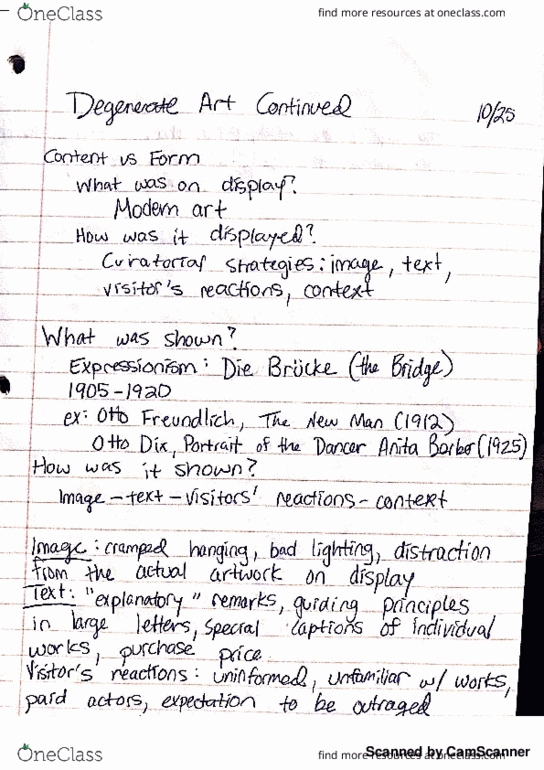 OneClass
find more resources at oneclass.com
Degenerate Art Continued
10/25
Content vs Form
What was on display?
Modern art
How was it displayed?
Curatorial strategies: image, text,
visitor's reactions, context
What was shown?
Expressionism: Die Brücke (the Bridge)
1905-1920
ex: Otto Freundlich, The New Man (1912)
Otto Dix, Portrait of the Dancer Anita Barber (1925)
How was it shown?
Image - text - visitors' reactions - context
Image: cramped hanging, bad lighting, distraction
from the actual artwork on display
Text: "explanatory" remarks, guiding principles
in large letters, special captions of individual
works, purchase price
Visitor's reactions: uninformed, unfamiliar w/ works,
paid actors, expectation to be outraged
OneClass
find more resources at oneclass.com
Scanned by CamScanner